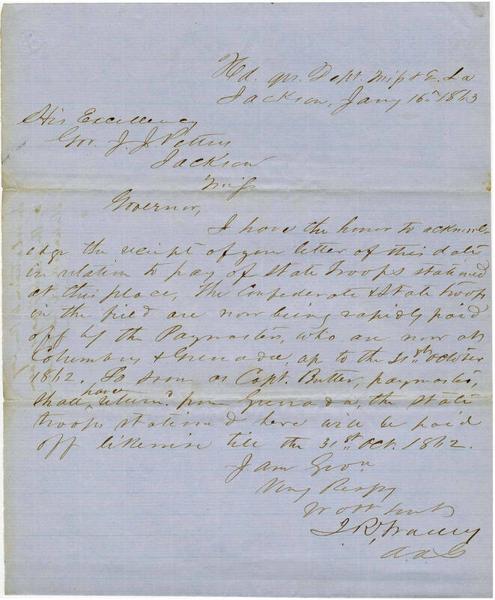 Hd. qrs. Dept. Miss & E. La
Jackson, Jany 16th 1863
His Excellency
Gov. J. J. Pettus
Jackson
Miss
Governor,
I have the honor to acknowl-
edge the receipt of your letter of this date
in relation to pay of State Troops stationed
at this place, The Confederate & State Troops
in the field are now being rapidly paid
off by the Paymasters, who are now at
Columbus & Grenada up to the 31st October
1862. So soon as Capt. Butler, paymaster,
shall have return'd from Grenada, the State
troops stationed here will be paid
off likewise till the 31st Oct. 1862.
I am Gov
Very Respy
Yr Obt Servt
J. R. Waddy
A.A.G